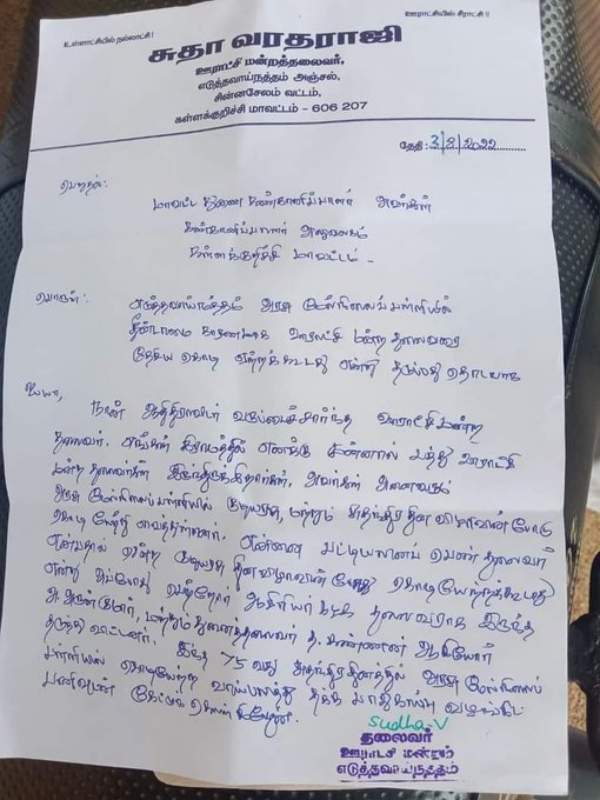 உள்ளாட்சியில் நல்லாட்சி !
ஊராட்சியில் சீராட்சி !!
சுதா வரதராஜி
ஊராட்சி மன்றத்தலைவர்,
எடுத்தவாய்நத்தம் அஞ்சல்,
சின்னசேலம் வட்டம்,
கள்ளக்குறிச்சி மாவட்டம் - 606 207
தேதி : 3/8/2022
பெறுதல்:
மாவட்ட துணை கண்காணிப்பாளர் அவர்கள்
கண்காணிப்பாளர் அலுவலகம்
கள்ளக்குறிச்சி மாவட்டம் -
பொருள்: எடுத்தவாய்நத்தம் அரசு மேல்நிலைப்பள்ளியில்
தீண்டாமை காரணமாக ஊராட்சி மன்ற தலைவரை
தேசிய கொடி ஏற்றக்கூடாது என்று தடுப்பது தொடர்பாக
ஐயா, நான் ஆதிதிராவிடர் வகுப்பைச்சார்ந்த ஊராட்சிமன்ற
தலைவர். எங்கள் கிராமத்தில் எனக்கு முன்னால் பத்து ஊராட்சி
மன்ற தலைவர்கள் இருந்திருக்கிறார்கள். அவர்கள் அனைவரும்
அரசு மேல்நிலைப்பள்ளியில் குடியரசு, மற்றும் சுதந்திர தின விழாவின் போது
கொடியேற்றி வைத்துள்ளனர். என்னை பட்டியலினப் பெண் தலைவர்
என்பதால் சென்ற குடியரசு தினவிழாவின் போது கொடியேற்றக்கூடாது
என்று அப்போது பெற்றோர் ஆசிரியர் கழக தலைவராக இருந்த
அ. அருண்குமார், மற்றும் துணைத்தலைவர் த. கண்ணன் ஆகியோர்
தடுத்து விட்டனர். இந்த 75 வது சுதந்திர தினத்தில் அரசு மேல்நிலைப்
பள்ளியில் கொடியேற்ற வாய்ப்பளித்து தக்க பாதுகாப்பு வழங்கிட
பணிவுடன் கேட்டுக் கொள்கிறேன்.
Sudha.V
தலைவர்
ஊராட்சி மன்றம்
எடுத்தவாய்நத்தம்